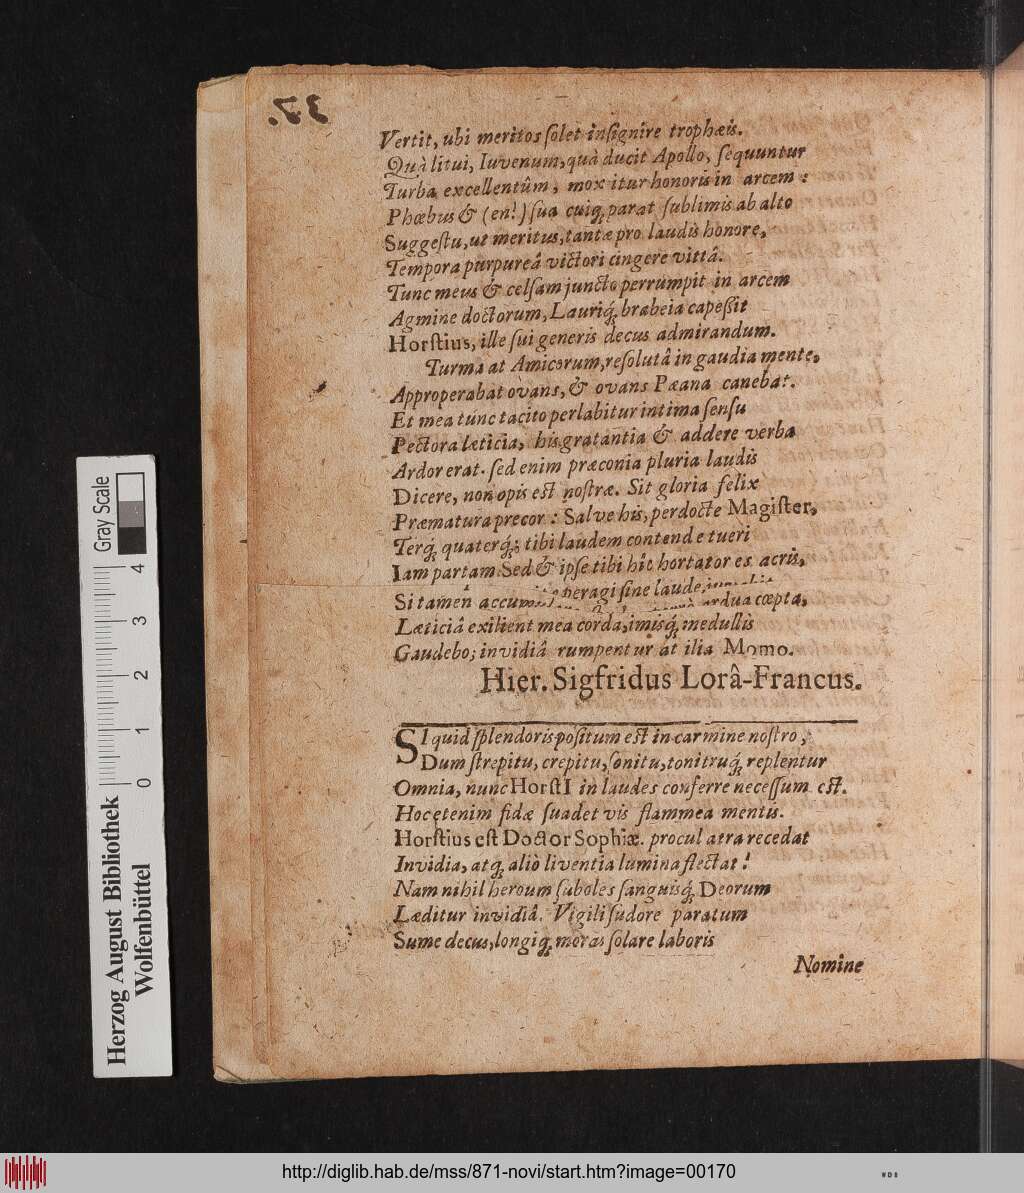 37.
Vertit, ubi meritos ſolet inſignire trophæis.
Quà litui, Iuvenum, quà ducit Apollo, ſequuntur
Turba excellentûm, mox itur honoris in arcem:
Phœbus & (en!) ſua cuiq́; parat ſublimis ab alto
Suggeſtu, ut meritus, tantæ pro laudis honore,
Tempora purpureâ victori cingere vittâ.
Tunc meus & celſam juncto perrumpit in arcem
Agmine doctorum, Lauriq́; brabeia capeßit
Horſtius, ille ſui generis decus admirandum.
Turma at Amicorum, reſolutâ in gaudia mente,
Approperabat ovans, & ovans Pæana canebat.
Et mea tunc tacito perlabitur intima ſenſu
Pectora læticia, his gratantia & addere verba
Ardor erat. ſed enim præconia pluria laudis
Dicere, non opis eſt noſtræ. Sit gloria felix
Præmatura precor: Salve his, perdocte Magiſter,
Terq́; quaterq́;; tibi laudem contende tueri
Iam partam. Sed & ipſe tibi hîc hortator es acris,
Si tamen peragi ſine laude,
ardua cœpta,
Læticiâ exilient mea corda, imisq́; medullis
Gaudebo; invidiâ rumpentur at ilia Momo.
Hier. Sigfridus Lorâ-Francus.
SI quid ſplendoris poſitum eſt in carmine noſtro,
Dum ſtrepitu, crepitu, ſonitu, tonitruq́; replentur
Omnia, nunc HorſtI in laudes conferre neceſſum eſt.
Hoc etenim fidæ ſuadet vis flammea mentis.
Horſtius eſt Doctor Sophiæ. procul atra recedat
Invidia, atq́; aliò liventia lumina flectat!
Nam nihil heroum ſuboles ſanguisq́; Deorum
Læditur invidiâ. Vigili ſudore paratum
Sume decus, longiq́; moras ſolare laboris
Nomine
Gray Scale
0 1 2 3 4
Herzog August Bibliothek
Wolfenbüttel
http://diglib.hab.de/mss/871-novi/start.htm?image=00170